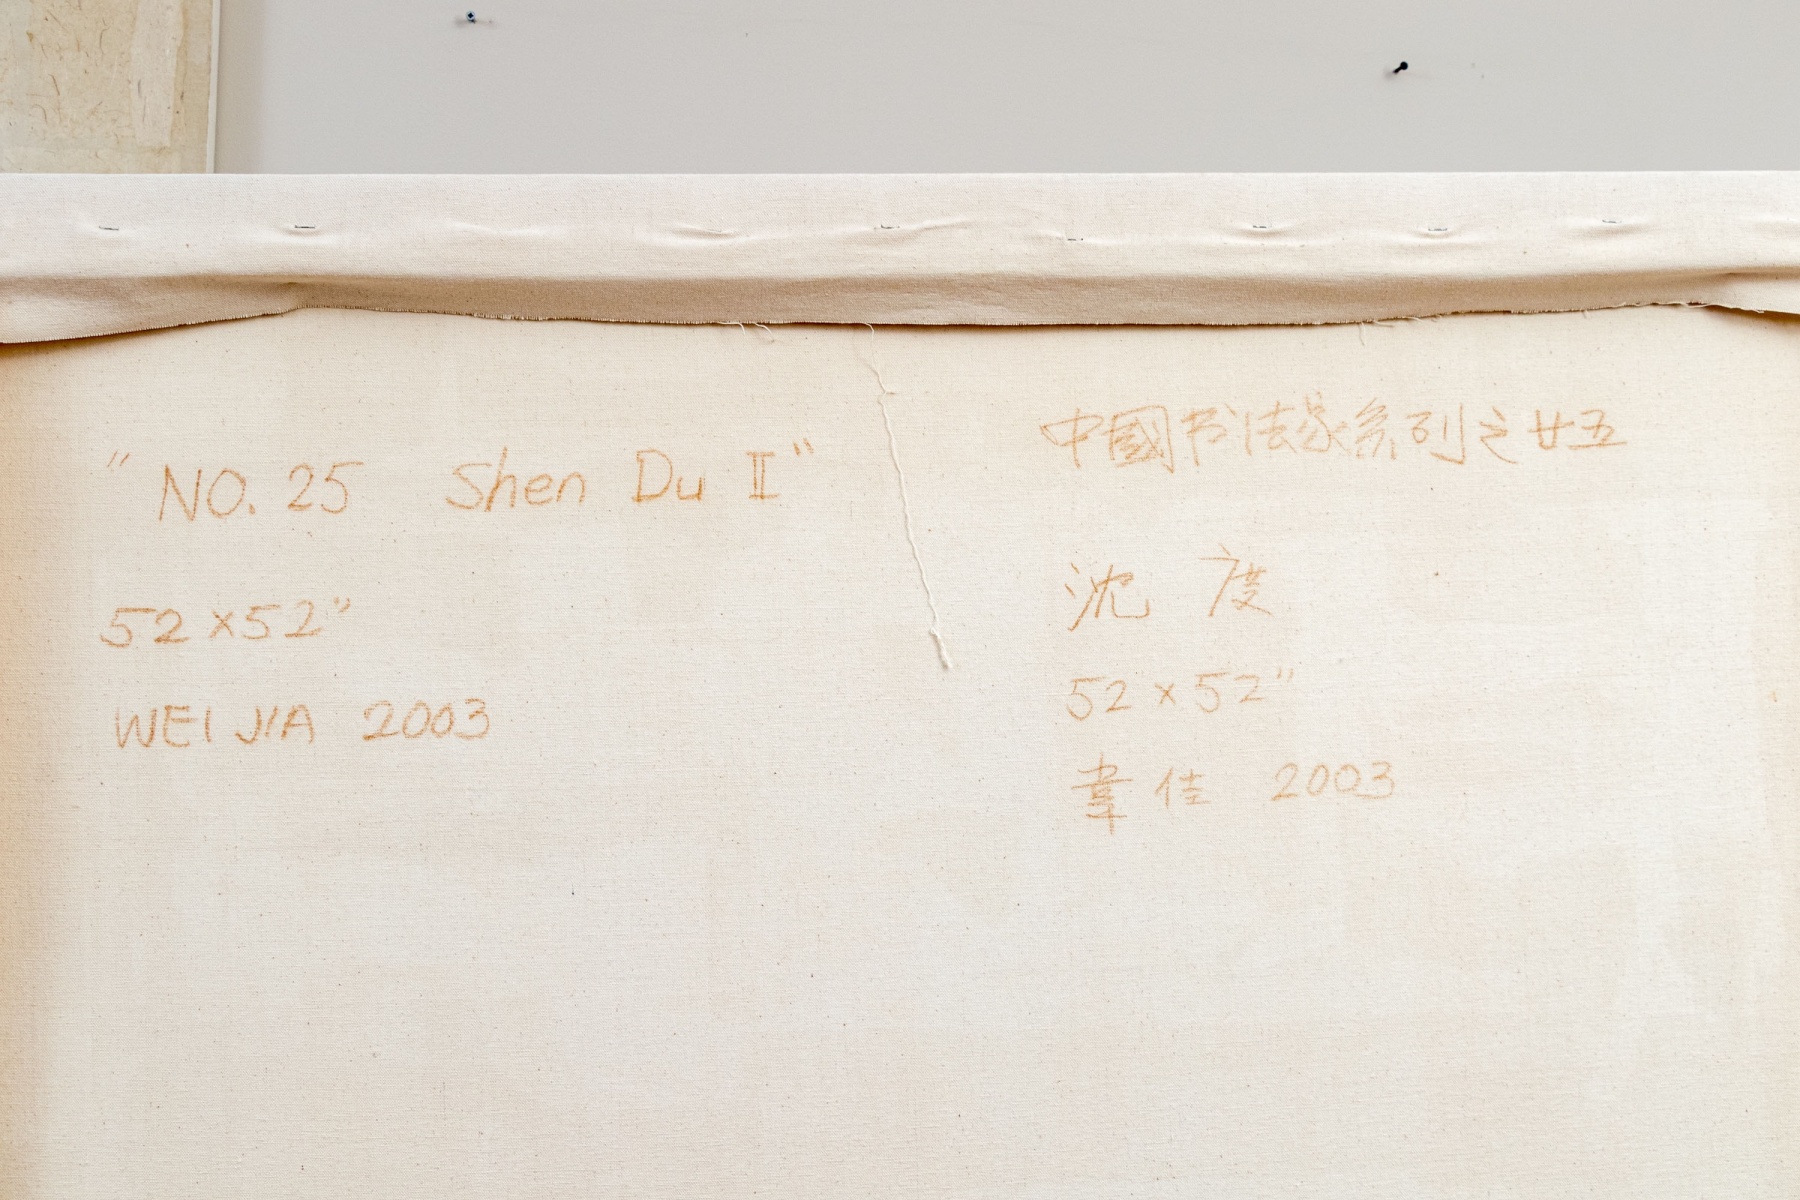 "NO. 25 Shen Du II"
52×52"
WEI JIA 2003
中國书法家系列之廿五
沈 度
52×52"
韋佳 2003